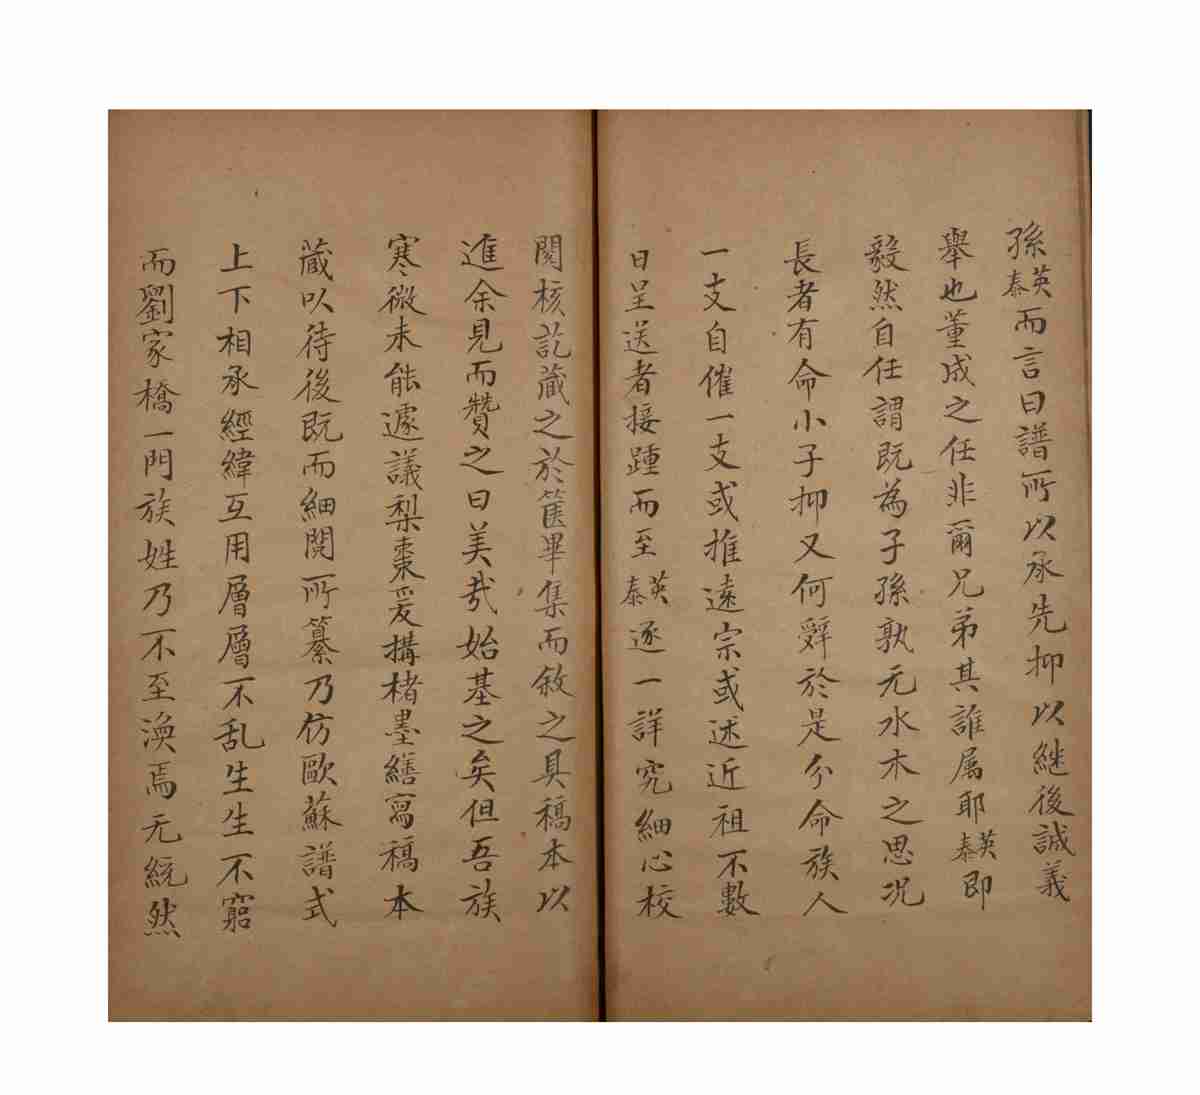 孫英泰而言曰譜所以承先抑以継後誠義
舉也董成之任非爾兄弟其誰属耶英泰即
毅然自任謂既為子孫孰无水木之思况
長者有命小子抑又何辭於是分命族人
一支自催一支或推遠宗或述近祖不數
日呈送者接踵而至英泰逐一詳究細心校
閱核訖蔵之於篋畢集而敘之具稿本以
進余見而贊之曰美哉始基之矣但吾族
寒微未能遽議梨棗爰搆楮墨繕寫稿本
蔵以待後既而細閱所纂乃仿歐蘇譜式
上下相承經緯互用層層不乱生生不窮
而劉家橋一門族姓乃不至渙焉无統然